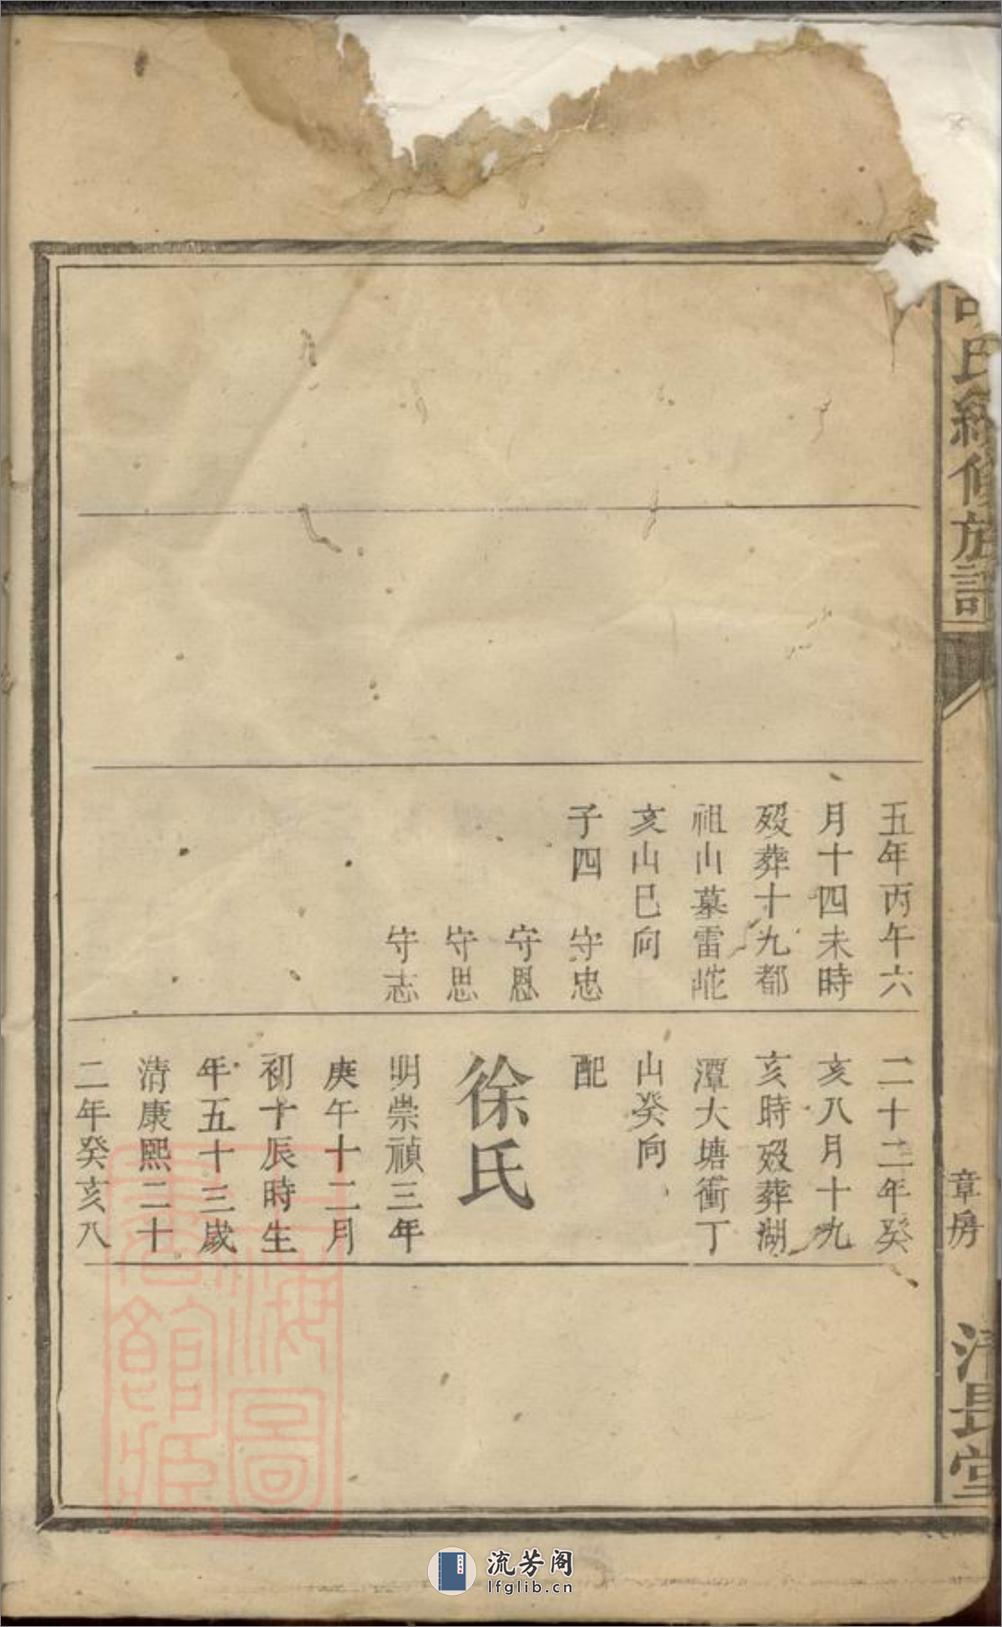 氏續修族譜
章房
清長堂
五年丙午六
月十四未時
歿葬十九都
祖山墓雷
亥山巳向
子四 守忠
守恩
守思
守志
二十二年癸
亥八月十九
亥時歿葬湖
潭大塘衝丁
山癸向
配
徐氏
明崇禎三年
庚午十二月
初十辰時生
年五十三歲
清康熙二十
二年癸亥八
上海圖
書館藏
流芳阁
lfglib.cn